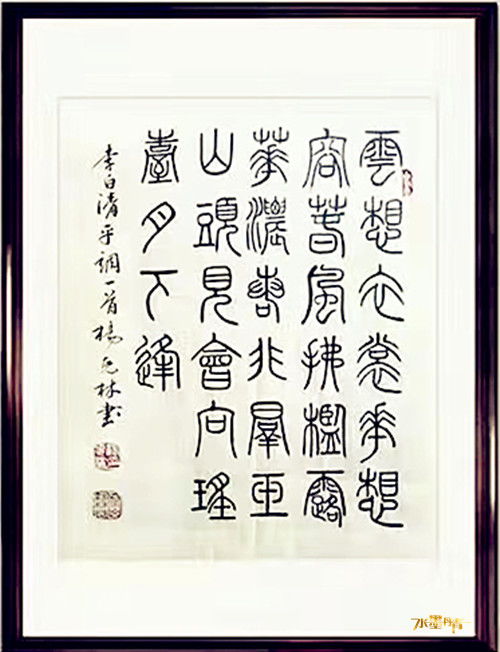 雲想衣裳花想
容春風拂檻露
華濃若非羣玉
山頭見會向瑤
臺月下逢
李白清平調一首楊林書
水墨丹青